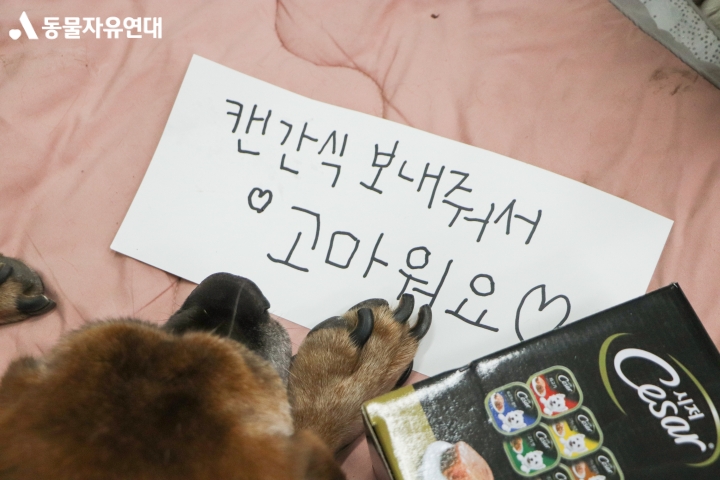 동물자유연대
캔간식 보내줘서
고마워요
시저
Cesar